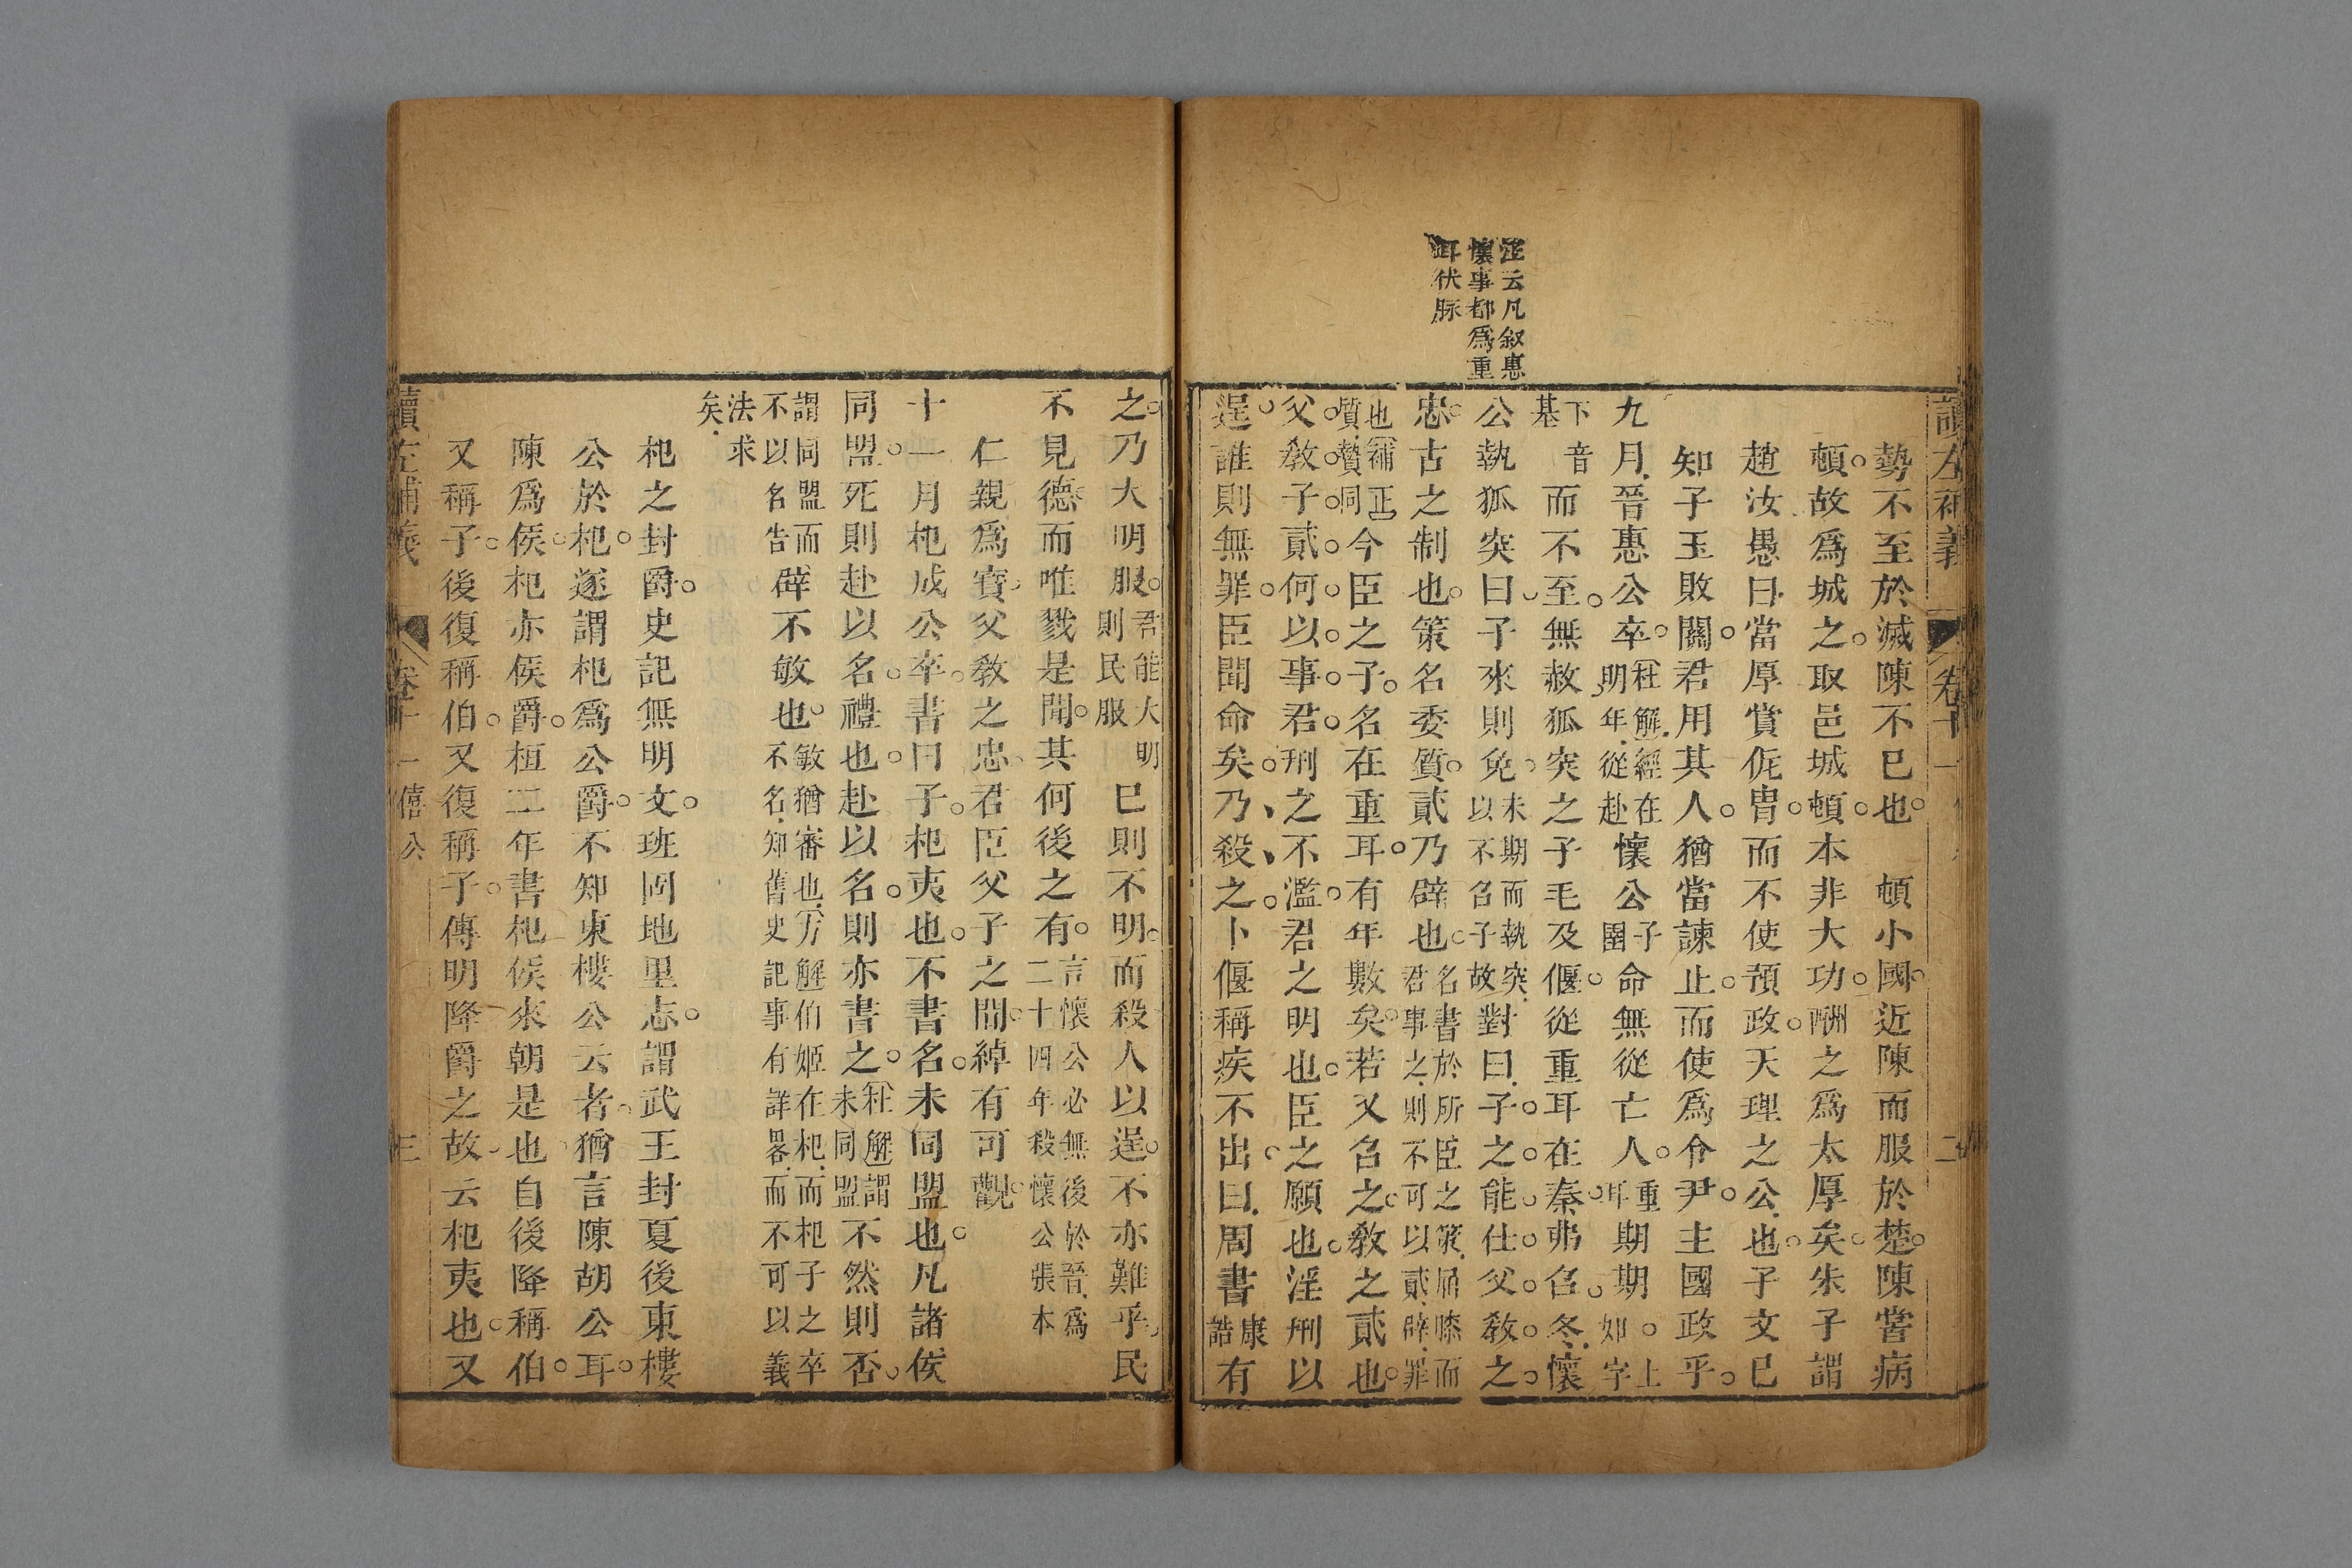 汪云凡叙惠
懷事都爲重
耳伏脉
讀左補義 卷十一 二
勢不至於滅陳不已也 頓小國近陳而服於楚陳嘗病
頓故爲城之取邑城頓本非大功酬之爲太厚矣朱子謂
趙汝愚曰當厚賞侂冑而不使預政天理之公也子文已
知子玉敗關君用其人猶當諫止而使爲令尹主國政乎
九月晉惠公卒杜解經在明年從赴懷公子圉命無從亡人重耳期期上如字
下音基而不至無赦狐突之子毛及偃從重耳在秦弗召冬懷
公執狐突曰子來則免未期而執突以不召子故對曰子之能仕父敎之
忠古之制也策名委質貳乃辟也名書於所臣之策屈膝而君事之則不可以貳辟罪
也補正質贄同今臣之子名在重耳有年數矣若又召之敎之貳也
父敎子貳何以事君刑之不濫君之明也臣之願也淫刑以
逞誰則無罪臣聞命矣乃殺之卜偃稱疾不出曰周書康誥有
之乃大明服君能大明則民服已則不明而殺人以逞不亦難乎民
不見德而唯戮是聞其何後之有言懷公必無後於晉爲二十四年殺懷公張本
仁親爲寶父敎之忠君臣父子之間綽有可觀
十一月杞成公卒書曰子杞夷也不書名未同盟也凡諸侯
同盟死則赴以名禮也赴以名則亦書之杜解謂未同盟不然則否
謂同盟而不以名告辟不敏也敏猶審也方解伯姬在杞而杞子之卒不名知舊史記事有詳畧而不可以義
法求矣
杞之封爵史記無明文班固地里志謂武王封夏後東樓
公於杞遂謂杞爲公爵不知東樓公云者猶言陳胡公耳
陳爲侯杞亦侯爵桓二年書杞侯來朝是也自後降稱伯
又稱子後復稱伯又復稱子傳明降爵之故云杞夷也又
讀左補義 卷十一 僖公 三